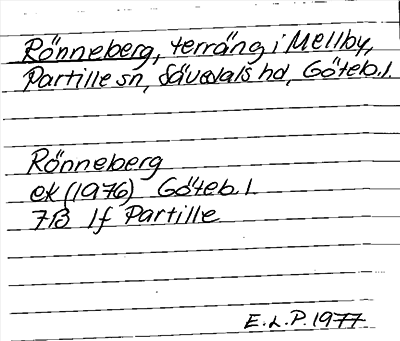 Rönneberg, terräng i Mellby,
Partille sn, Sävedals hd, Göteb. l.
Rönneberg
ek (1976) Göteb. l.
7B 1f Partille
E.L.P. 1977